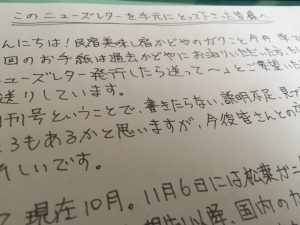 このニューズレターを手元にとって下さった皆様へ
んにちは！民宿美味し宿かどやのガクこと今井
回のお手紙は過去かどやにお泊りいただいた方
ューズレター発行したら送って〜」とご要望いた
送りしています。
刊号ということで、書きたらない、説明不足、見づ
ろもあるかと思いますが、今後皆さんとの
しいです。
て 現在10月。11月6日には松葉ガニ
以降、国内のカ